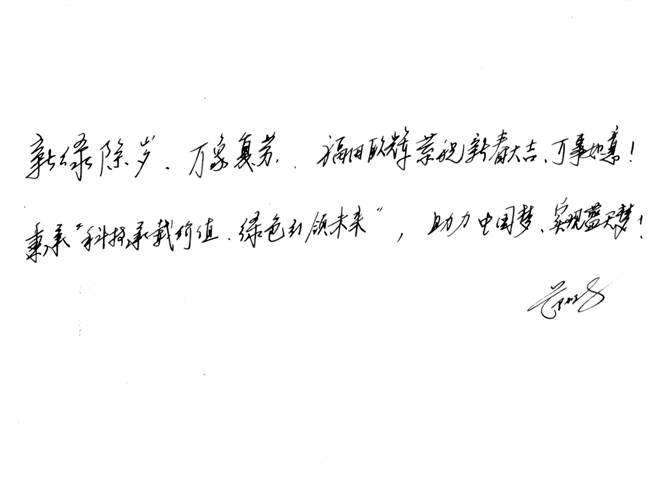 新绿除岁、万象复苏. 福田欧辉恭祝新春大吉、万事如意!
秉承“科技承载价值、绿色引领未来”, 助力中国梦、实现蓝天梦!